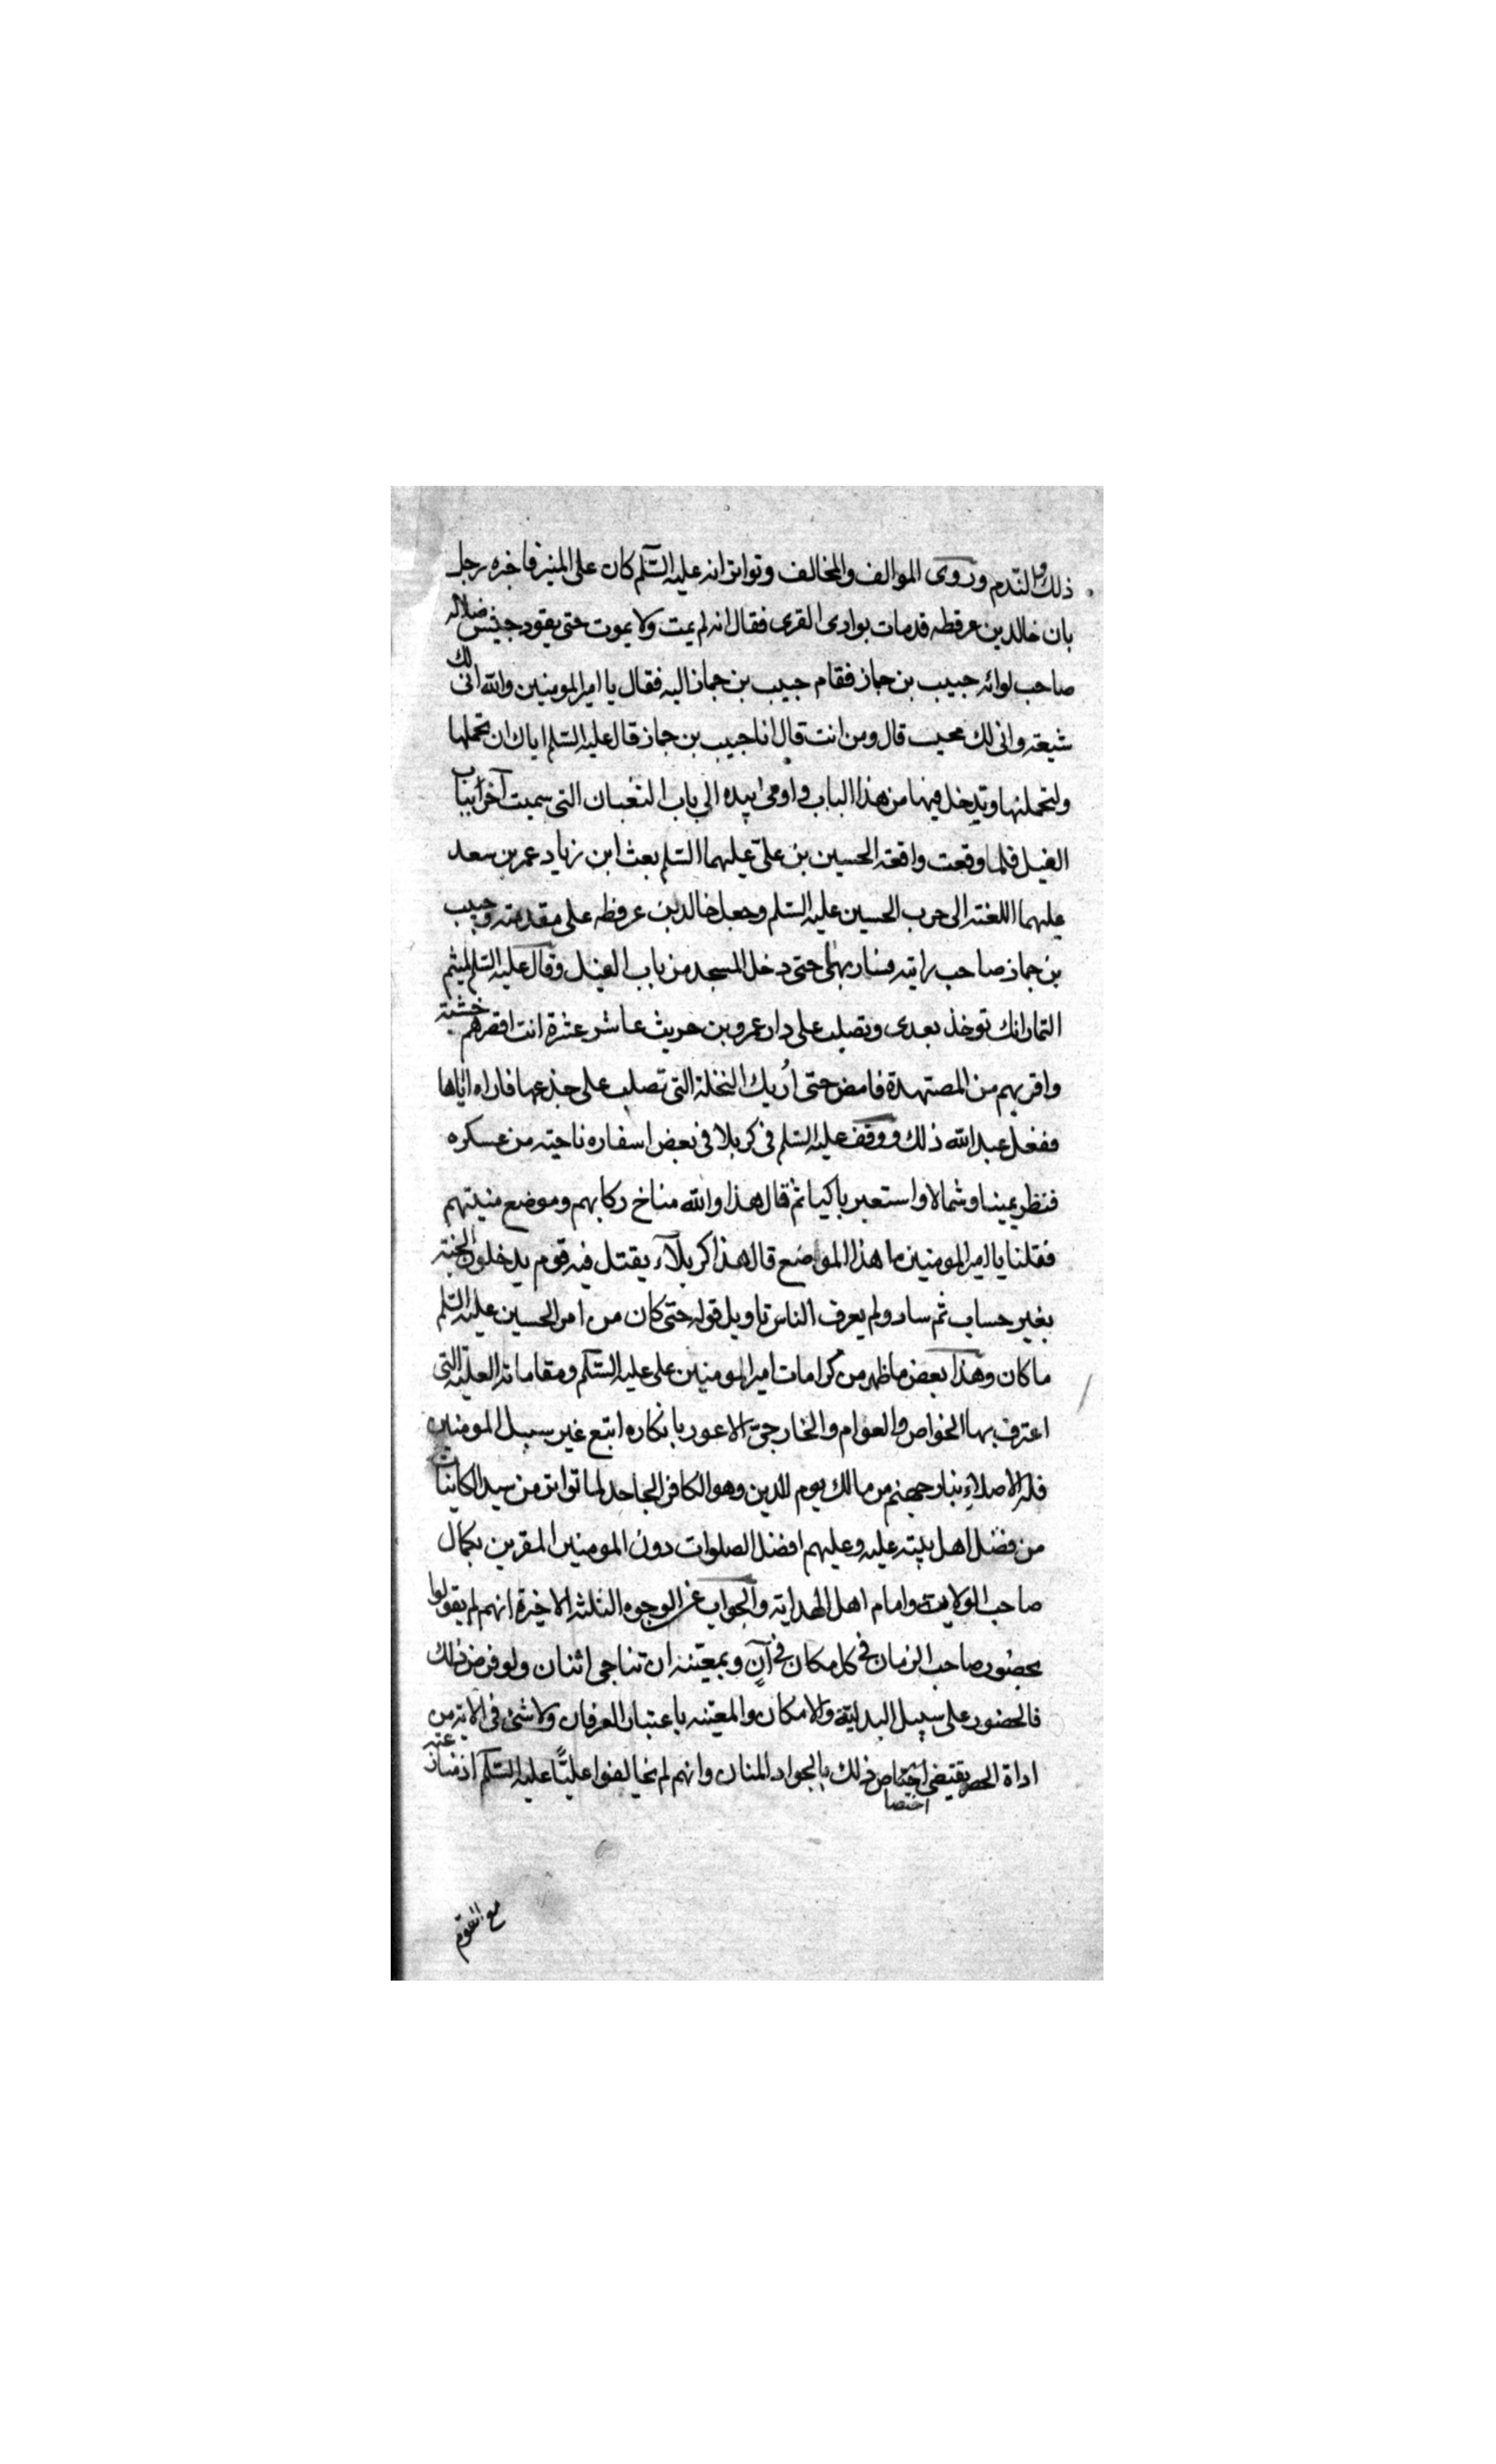 ذلك والندم وروى الموالف والمخالف وتواتر انه عليه السّلم كان على المنبر فاخبره رجل
بان خالد بن عرفطه قد مات بوادى القرى فقال انه لم يمت ولا يموت حتى يقود جيش ضلاله
صاحب لوائه حبيب بن جماز فقام حبيب بن جماز اليه فقال يا امير المومنين والله انى لك
شيعته وانى لك محب قال ومن انت قال انا حبيب بن جماز قال عليه السّلم اياك ان تحملها
ولتحملنها وتدخل فيها من هذا الباب و اومى بيده الى باب الثعبان التى سميت آخرا بباب
الفيل فلما وقعت واقعة الحسين بن علىّ عليهما السّلم بعث ابن زياد عمر بن سعد
عليهما اللعنة الى حرب الحسين عليه السّلم وجعل خالد بن عرفطه على مقدمته وحبيب
بن جماز صاحب رايته فسار بهما حتى دخل المسجد من باب الفيل وقال عليه السّلم لميثم
التمار انك توخذ بعدى وتصلب على دار عمرو بن حريث عاشر عشرة انت اقصرهم خشبة
واقربهم من المصتهدة فامض حتى اُريك النخلة التى تصلب على جذعها فاراه اياها
ففعل عبد الله ذلك ووقف عليه السّلم فى كربلا فى بعض اسفاره ناحيته من عسكره
فنظر يمينا وشمالا واستعبر باكيا ثم قال هذا والله مناخ ركابهم وموضع منيتهم
فقلنا يا امير المومنين ما هذا المواضع قال هذا كربلآء يقتل فيه قوم يدخلون الجنة
بغير حساب ثم سار ولم يعرف الناس تاويل قوله حتى كان من امر الحسين عليه السّلم
ما كان وهذا بعض ما ظهر من كرامات امير المومنين على عليه السّلم ومقاماته العليه التى
اعترف بها الخواص والعوام والخارجىّ الاعور بانكاره اتبع غير سبيل المومنين
فله الاصلاء بنار جهنم من مالك يوم الدين وهو الكافر الجاحد لما تواتر من سيد الكاينات
من فضل اهل بيته عليه وعليهم افضل الصلوات دون المومنين المقرين بكمال
صاحب الولايت وامام اهل الهدايته والجواب عن الوجوه الثلثه الاخيرة انهم لم يقولوا
بحضور صاحب الزمان فى كل مكان فى آنٍ وبمعيّته ان تناجى اثنان ولو فرض ذلك
فالحضور على سبيل البدليّة والامكان والمعيّنه باعتبار العرفان ولا شئ فى الايه من
اداة الحصر يقتضى اختصاص ذلك بالجواد المنان وانهم لم يخالفوا عليًّا عليه السّلم اذ منازعته
اختصا
مع القوم